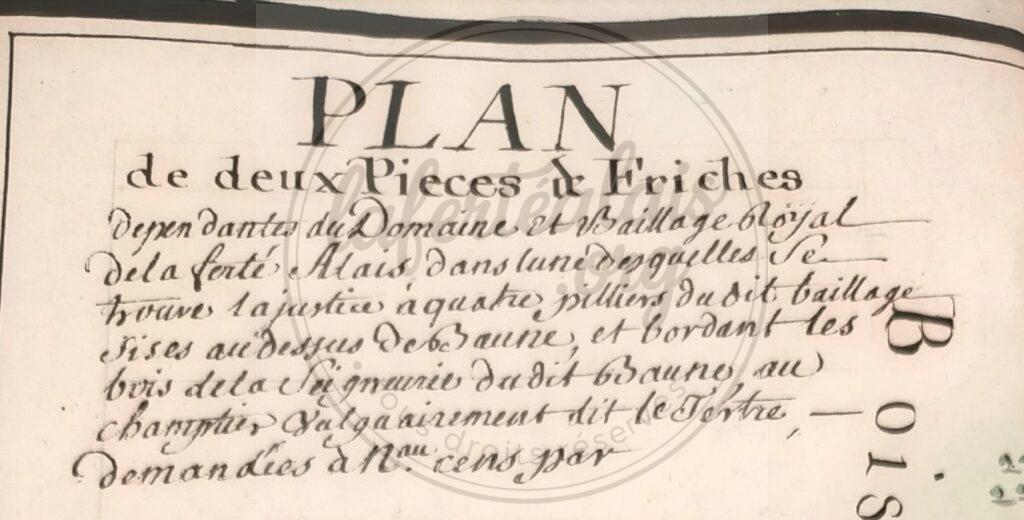 PLAN
de deux Pieces de Friches
dependantes du Domaine et Baillage Royal
de la ferté Alais, dans lune desquelles Se
trouve la justice à quatre pilliers du dit baillage
sises au dessus de Baune, et bordant les
bois de la Seigneurie du dit Baune, au
champtier vulguairement dit le Tertre,
demandées à N.au cens par
BOIS
lafertealais
.org
tous droits réservés